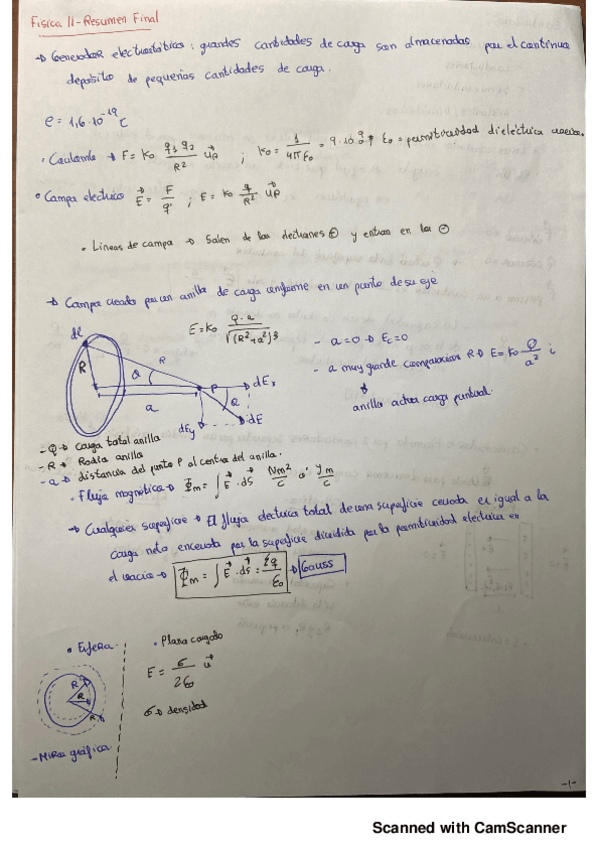 Física II-Resumen Final
→ Generador electrostático: grandes cantidades de carga son almacenadas por el continuo
deposito de pequeñas cantidades de carga.
e = 1,6·10⁻¹⁹ C
· Coulomb → F = K₀ q₁q₂/R² u⃗R ; K₀ = 1/4πε₀ = 9·10⁹ ; ε₀ = permitividad dieléctrica
· Campo electrico E⃗ = F/q' ; E = K₀ q/R² u⃗R
• Lineas de campo → Salen de las ⊕ y entran en las ⊖
→ Campo creado por un anillo de carga uniforme en un punto de su eje
E = K₀ Q·a/√(R²+a²)³
- a=0 → Ec=0
- a muy grande comparación R → E = K₀ Q/a² ;
anillo actua carga puntual.
dl
R
R
a
P
dEx
dEy
dE
- Q → Carga total anilla
- R → Radio anilla
- a → distancia del punto P al centro del anillo.
• Flujo magnético → Φm = ∫E⃗·ds⃗ Nm²/C o' Vm
→ Cualquier superficie → El flujo electrico total de una superficie cerrada es igual a la
carga neta encerrada por la superficie dividida por la permitividad electrica en
el vacio → Φm = ∫E⃗·ds⃗ = Σq/ε₀ → Gauss
• Esfera
R
R
R
- Mirar gráfica
• Plano cargado
E = σ/2ε₀ u⃗
σ → densidad
-1-
Scanned with CamScanner